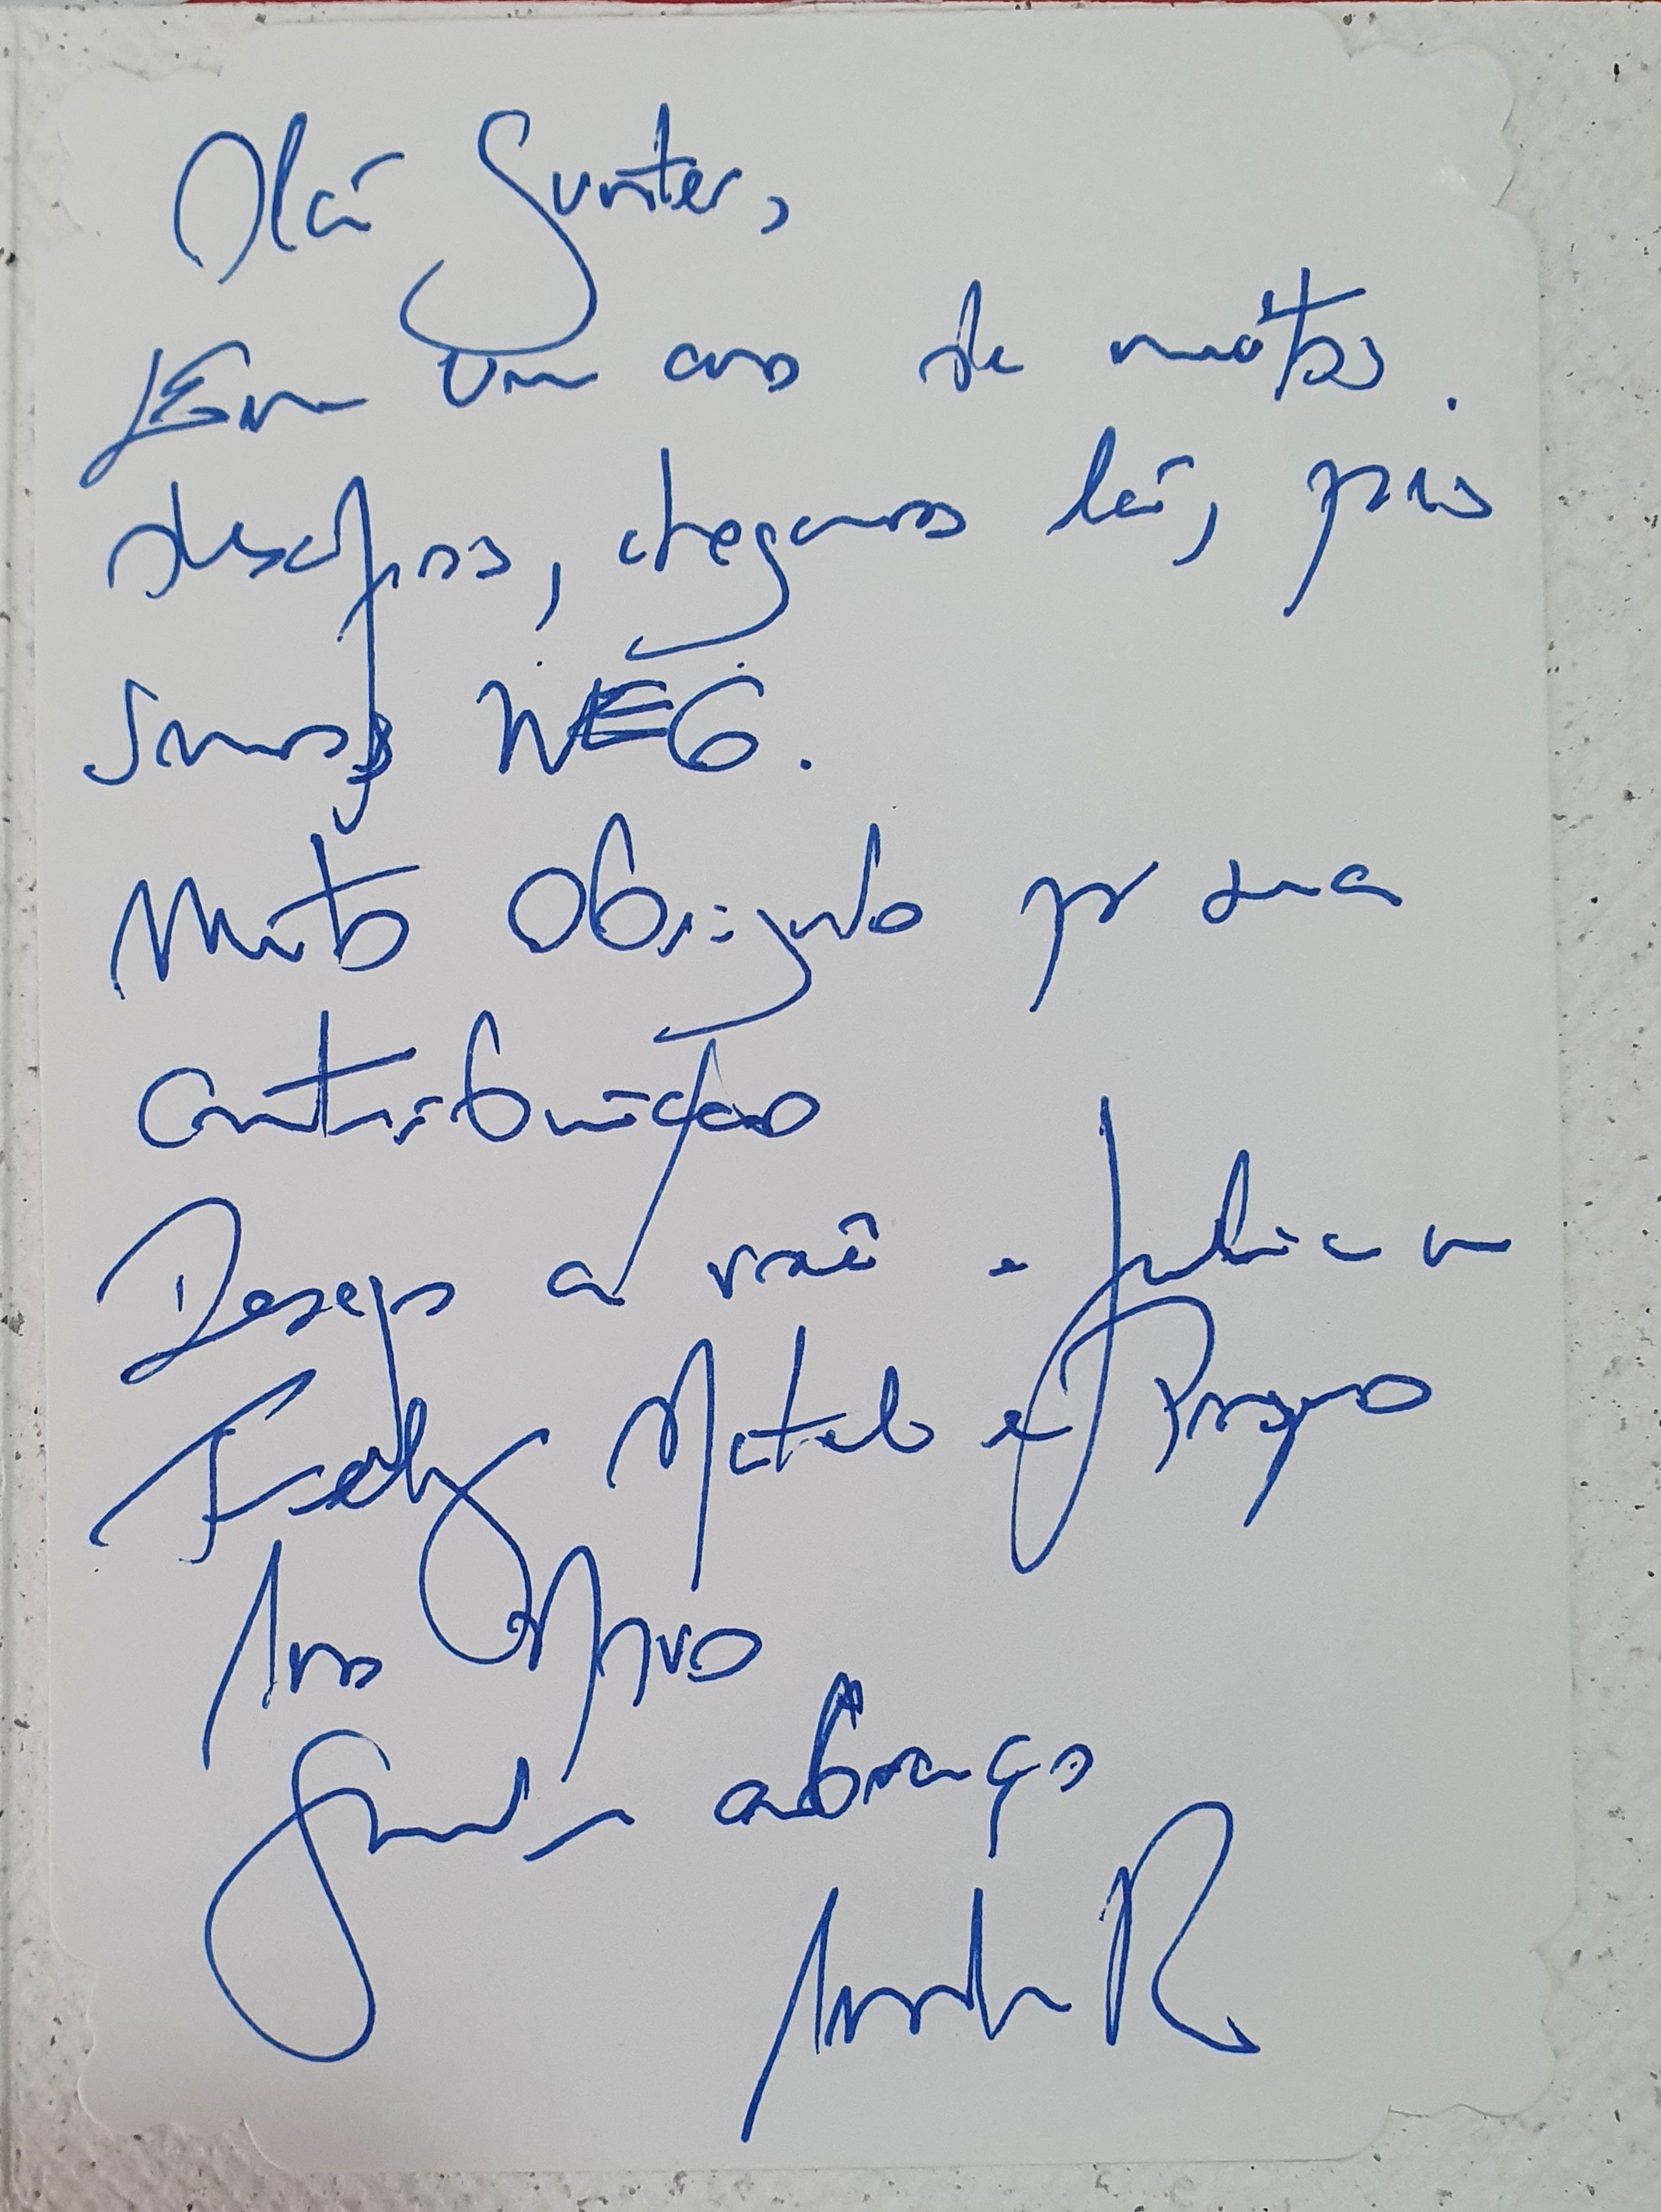 Olá Gunter,
Em um ano de muitos
desafios, chegamos lá, pois
somos WEG.
Muito Obrigado por sua
contribuição
Desejo a você e família um
Feliz Natal e Próspero
Ano Novo
Grande abraço